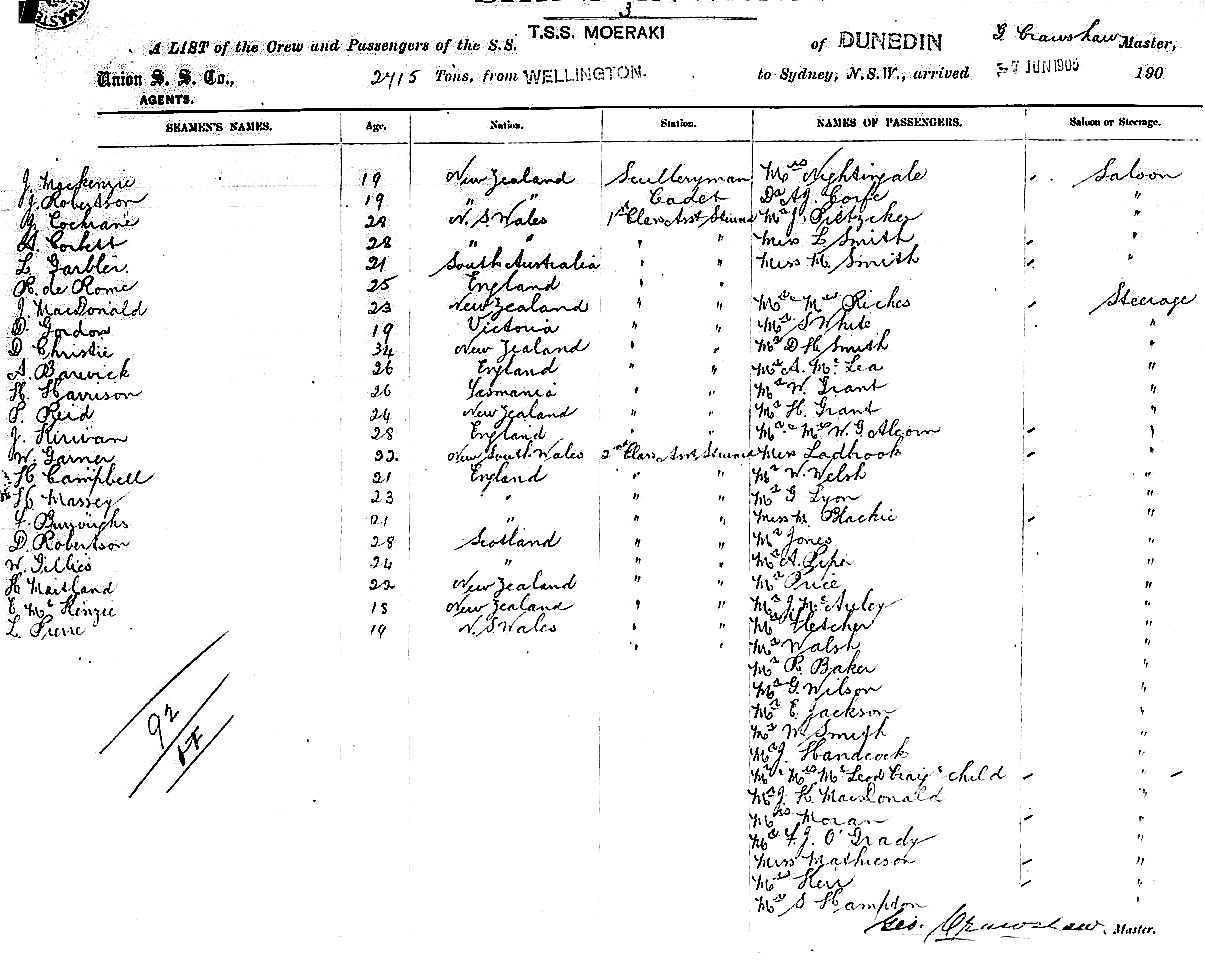 3
A LIST of the Crew and Passengers of the S.S. T.S.S. MOERAKI of DUNEDIN G Crawshaw Master,
Union S. S. Co., 2715 Tons, from WELLINGTON. to Sydney, N.S.W., arrived 7 JUN 1905 190
AGENTS.
SEAMEN'S NAMES. Age. Nation. Station. NAMES OF PASSENGERS. Saloon or Steerage.
J. Mackenzie 19 New Zealand Sculleryman Mrs Nightingale Saloon
J. Robertson 19 " " Cadet Dr A J. "
Cochrane 28 N. S. Wales 1st Class Asst Steward Mr J. Pietzcker "
A. Corbett 28 " " " " Miss L Smith "
L. Garbler. 21 South Australia " " Miss M. Smith "
R. de Rome 25 England " "
J. MacDonald 23 New Zealand " " Mr & Mrs Riches Steerage
D. Gordon 19 Victoria " " Mr S White "
D Christie 34 New Zealand " " Mr D H. Smith "
A. Barwick 26 England " " Mr A. Mc Lea "
H. Harrison 26 Tasmania " " Mr W. Grant "
P. Reid 24 New Zealand " " Mr H. Grant "
J. Kirwan 28 England " " Mr & Mrs W. G. Alcorn "
W. Garner 32. New South Wales 2nd Class Asst Steward Miss Ladbrook "
H. Campbell 21 England " " Mr W. Welsh "
H. Massey 23 " " " Mr G Lyon "
F. Burroughs 21 " " " Miss M. Blackie "
D. Robertson 28 Scotland " " Mr Jones "
W. Gillies 24 " " " Mr A. Piper "
H Maitland 22 New Zealand " " Mr Price "
E Mc Kenzie 18 New Zealand " " Mr J. McAuley "
L. Pierre 19 N. S Wales " " Mr Fletcher "
" " Mr Walsh "
Mr R. Baker "
Mr G. Wilson "
Mr E. Jackson "
Mr W. Smith "
Mr J. Handcock "
Mr & Mrs McLeod Craig & child "
Mr J. H. MacDonald "
Mrs Moran "
Mr F. J. O'Grady "
Miss Mathieson "
Mrs Kerr "
Mr S Hampton "
92
Geo. Crawshaw, Master.